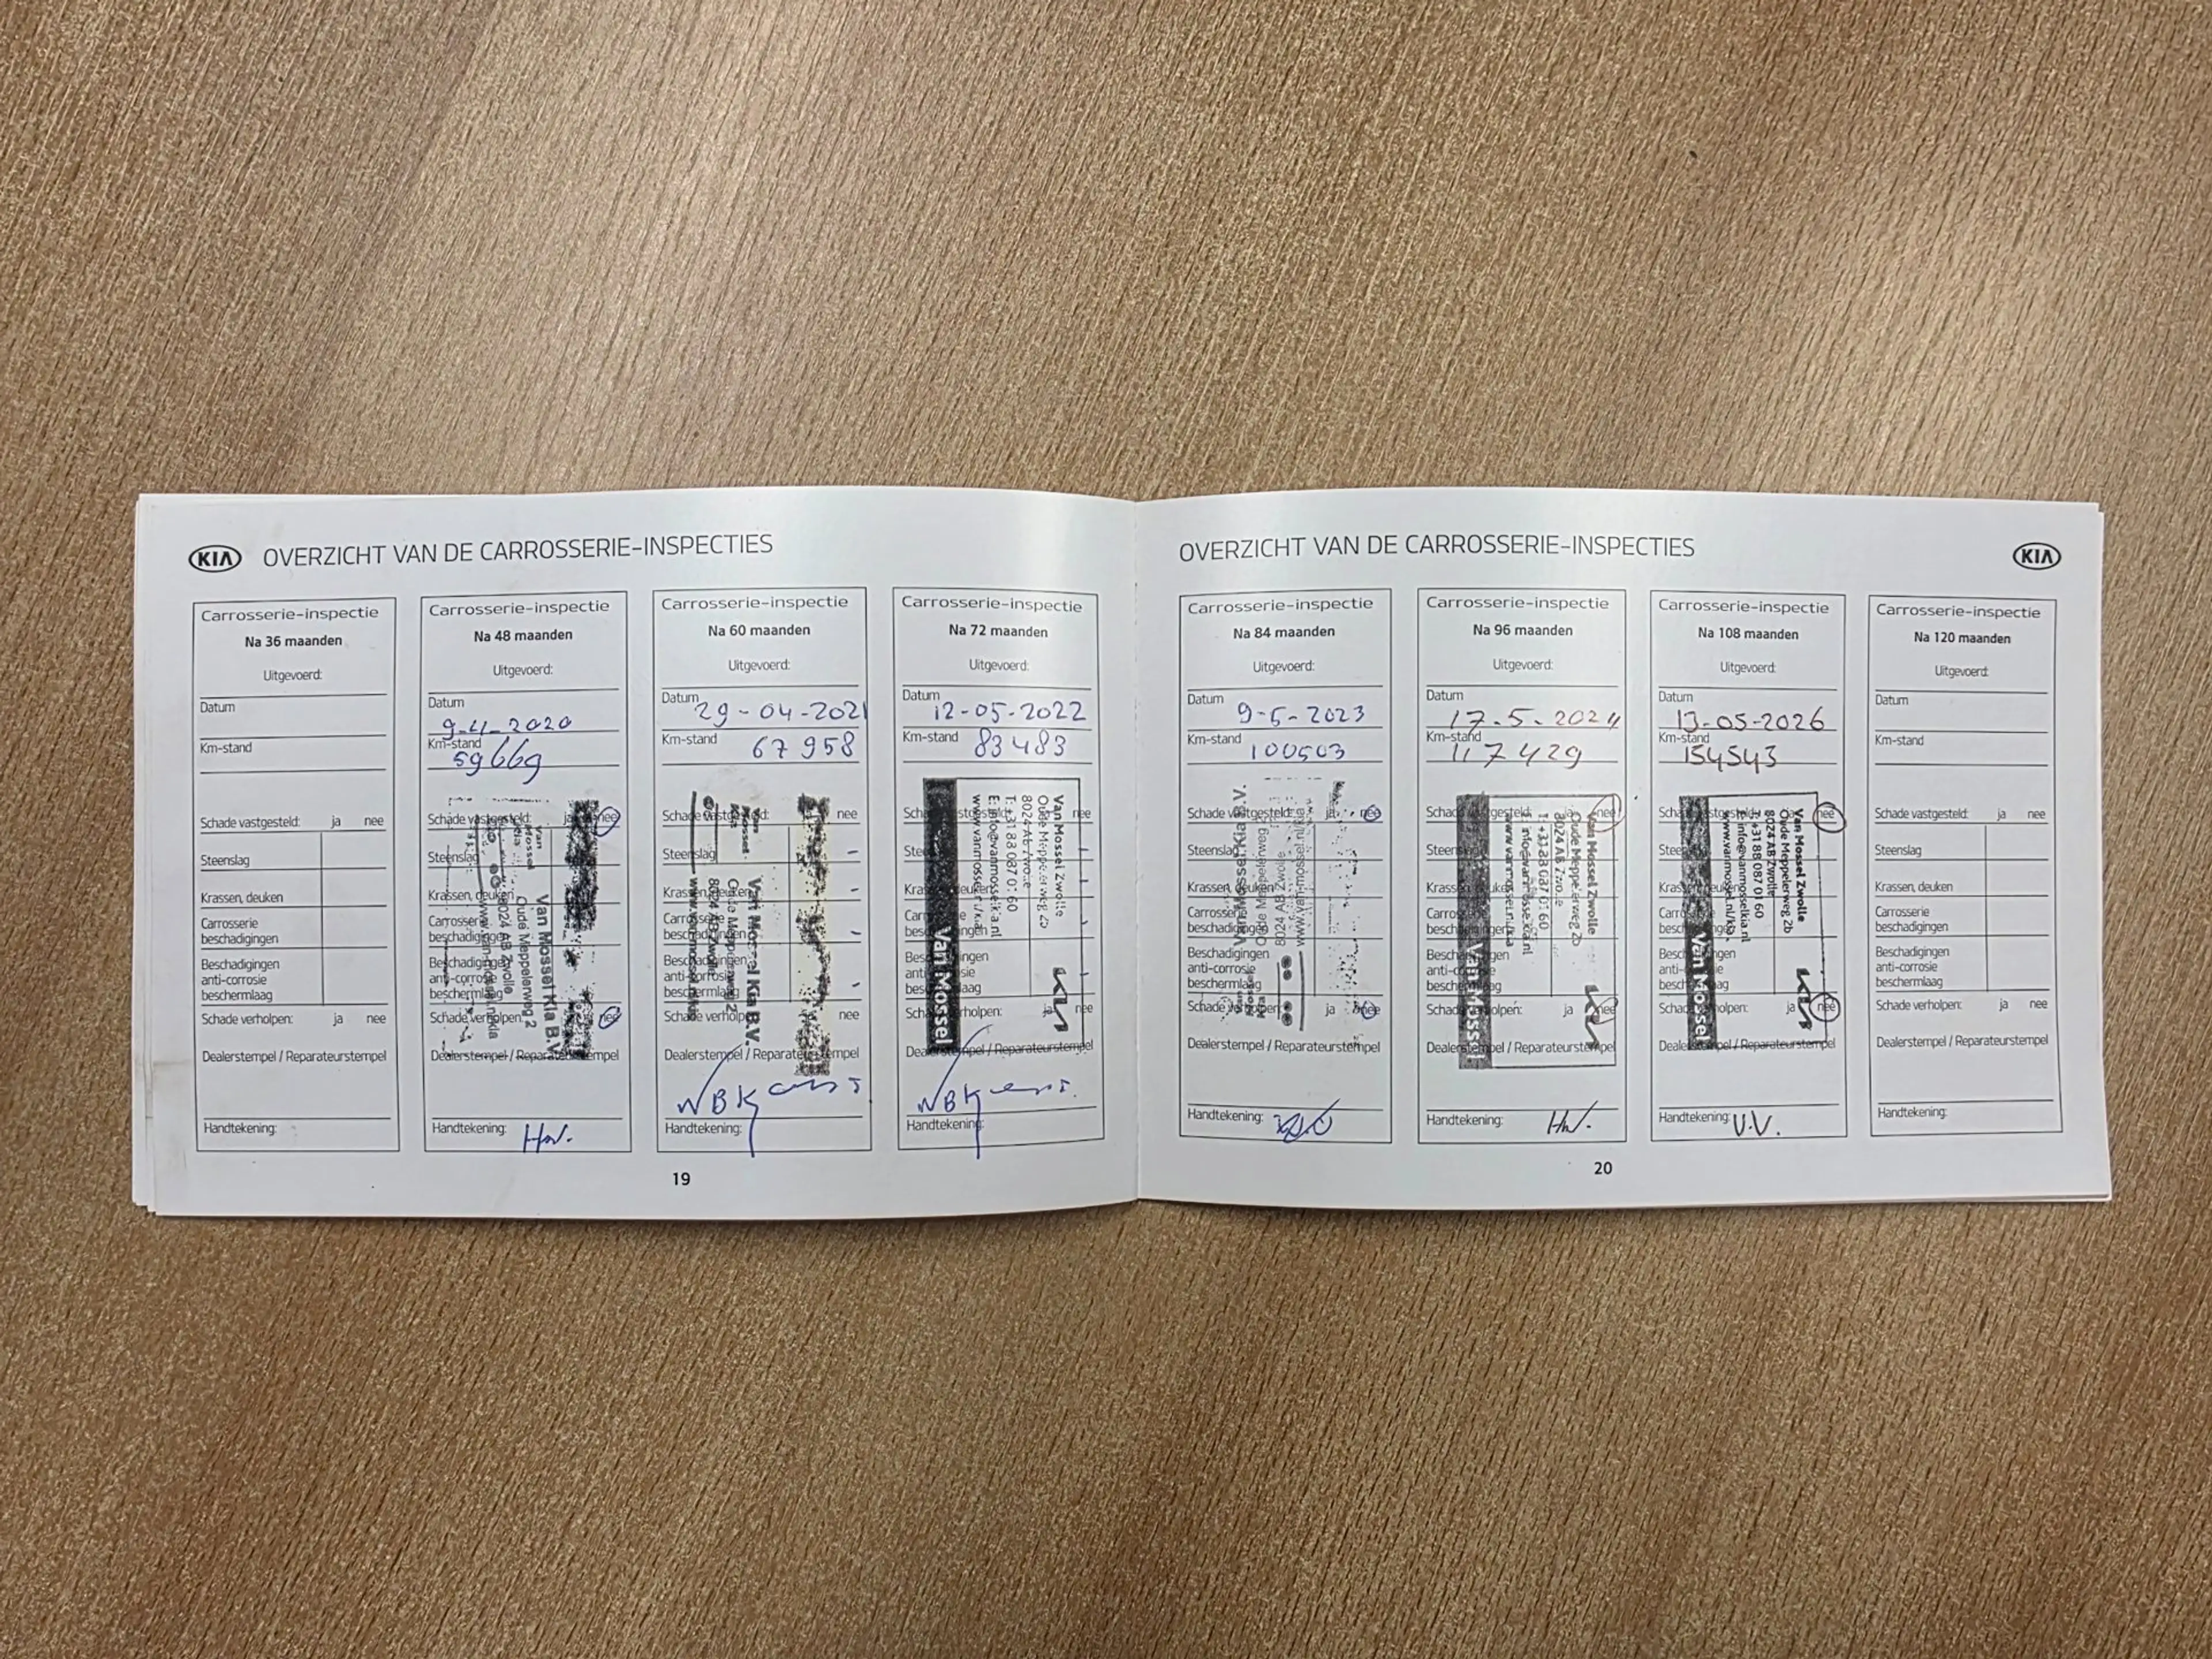 KIA OVERZICHT VAN DE CARROSSERIE-INSPECTIES
Carrosserie-inspectie
Na 36 maanden
Uitgevoerd:
Datum
Km-stand
Schade vastgesteld: ja nee
Steenslag
Krassen, deuken
Carrosserie
beschadigingen
Beschadigingen
anti-corrosie
beschermlaag
Schade verholpen: ja nee
Dealerstempel / Reparateurstempel
Handtekening:
Carrosserie-inspectie
Na 48 maanden
Uitgevoerd:
Datum
Km-stand
59669
Schade vastgesteld: ja nee
Steenslag
Krassen, deuken
Carrosserie
beschadigingen
Beschadigingen
anti-corrosie
beschermlaag
Schade verholpen: nee
Van Mossel Kia B.V.
Oude Meppelerweg 2
8024 AB Zwolle
Dealerstempel / Reparateurstempel
Handtekening: HW.
Carrosserie-inspectie
Na 60 maanden
Uitgevoerd:
Datum 29-04-2021
Km-stand 67958
Schade vastgesteld: nee
Steenslag
Krassen, deuken
Carrosserie
beschadigingen
Beschadigingen
anti-corrosie
beschermlaag
Schade verholpen: nee
Van Mossel Kia B.V.
Oude Meppelerweg 2
8024 AB Zwolle
Dealerstempel / Reparateurstempel
Handtekening:
Carrosserie-inspectie
Na 72 maanden
Uitgevoerd:
Datum 12-05-2022
Km-stand 83483
nee
Van Mossel Zwolle
Oude Meppelerweg 2b
8024 AB Zwolle
T: +31 88 087 01 60
E: info@vanmosselkia.nl
www.vanmossel.nl/kia
Van Mossel
ja nee
Dealerstempel / Reparateurstempel
Handtekening:
19
OVERZICHT VAN DE CARROSSERIE-INSPECTIES KIA
Carrosserie-inspectie
Na 84 maanden
Uitgevoerd:
Datum 9-5-2023
Km-stand 100503
Schade vastgesteld: ja nee
Steenslag
Krassen, deuken
Carrosserie
beschadigingen
Beschadigingen
anti-corrosie
beschermlaag
Schade verholpen: ja nee
Van Mossel Kia B.V.
Oude Meppelerweg
8024 AB Zwolle
Dealerstempel / Reparateurstempel
Handtekening:
Carrosserie-inspectie
Na 96 maanden
Uitgevoerd:
Datum
17-5-2024
Km-stand
117429
nee
Van Mossel Zwolle
Oude Meppelerweg 2b
8024 AB Zwolle
T +31 88 087 01 60
info@vanmosselkia.nl
www.vanmossel.nl/kia
Van Mossel
ja nee
Dealerstempel / Reparateurstempel
Handtekening: HW.
Carrosserie-inspectie
Na 108 maanden
Uitgevoerd:
Datum
13-05-2026
Km-stand
154543
nee
Van Mossel Zwolle
Oude Meppelerweg 2b
8024 AB Zwolle
T +31 88 087 01 60
info@vanmosselkia.nl
www.vanmossel.nl/kia
Van Mossel
ja nee
Dealerstempel / Reparateurstempel
Handtekening: V.V.
Carrosserie-inspectie
Na 120 maanden
Uitgevoerd:
Datum
Km-stand
Schade vastgesteld: ja nee
Steenslag
Krassen, deuken
Carrosserie
beschadigingen
Beschadigingen
anti-corrosie
beschermlaag
Schade verholpen: ja nee
Dealerstempel / Reparateurstempel
Handtekening:
20